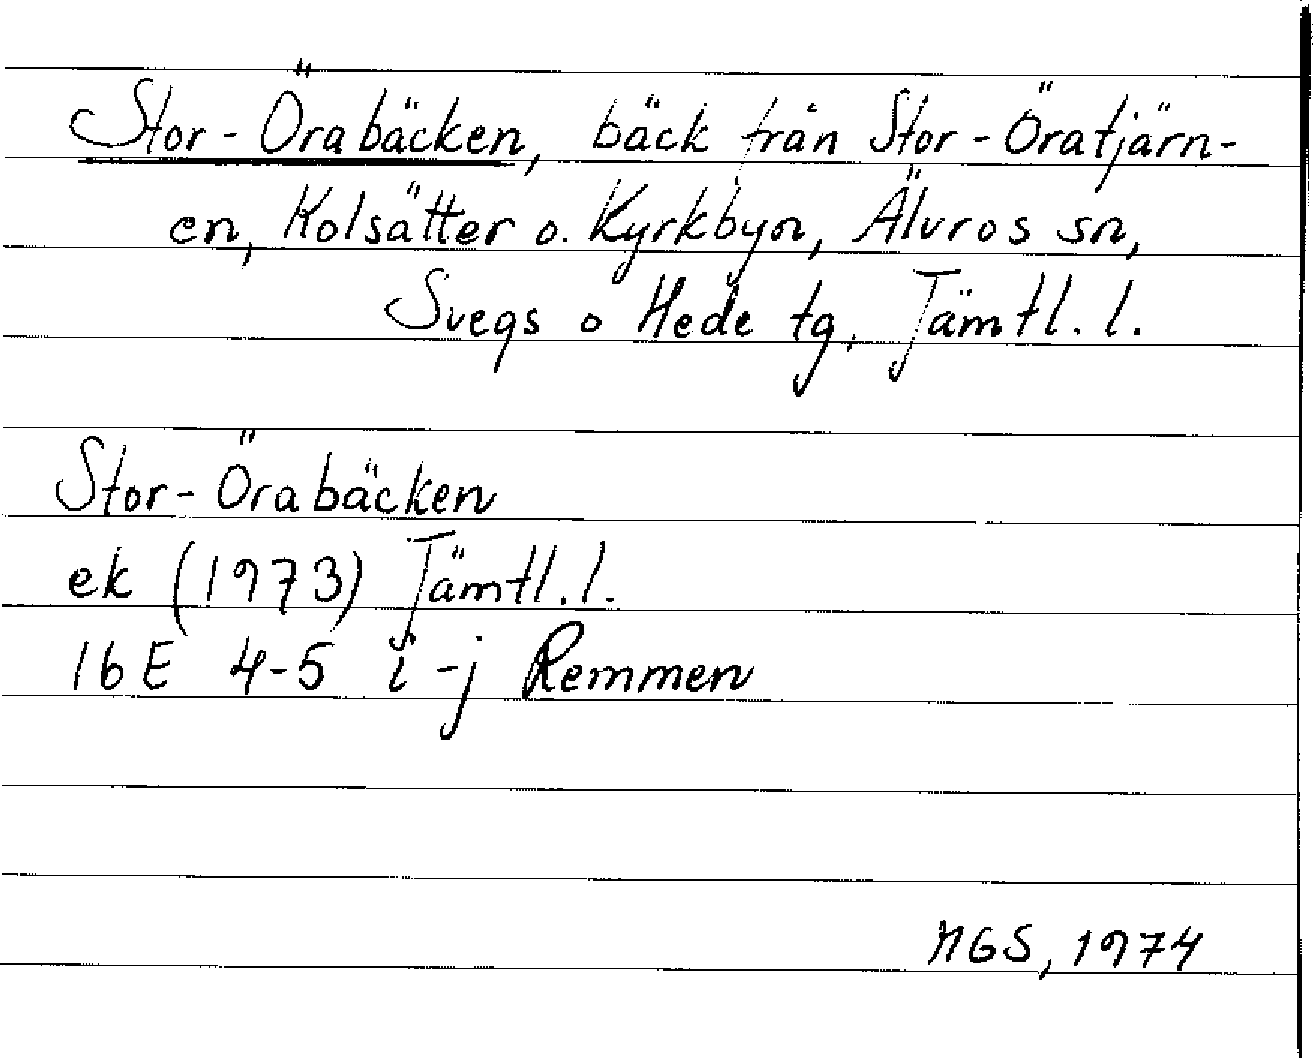 Stor-Örabäcken, bäck från Stor-Öratjärn-
en, Kolsätter o. Kyrkbyn, Älvros sn,
Svegs o Hede tg, Jämtl. l.
Stor-Örabäcken
ek (1973) Jämtl. l.
16E 4-5 i-j Remmen
MGS, 1974